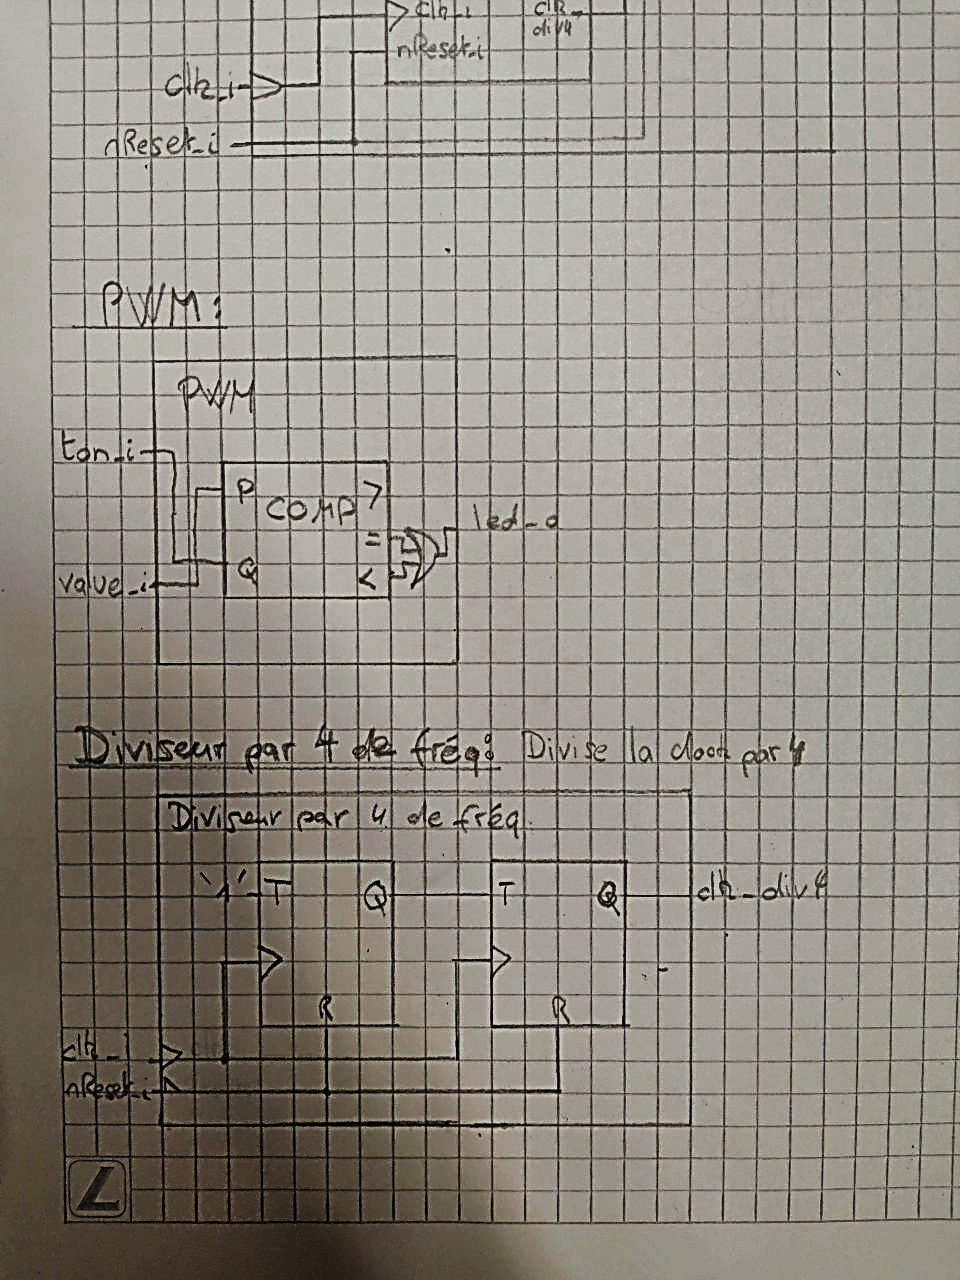 clk_i clk_
div4
nReset_i
clk_i
nReset_i
PWM:
PWM
ton_i
P COMP >
led_o
=
value_i Q <
Diviseur par 4 de fréq: Divise la clock par 4
Diviseur par 4 de fréq.
'1' T Q T Q clk_div4
R R
clk_i
nReset_i
L